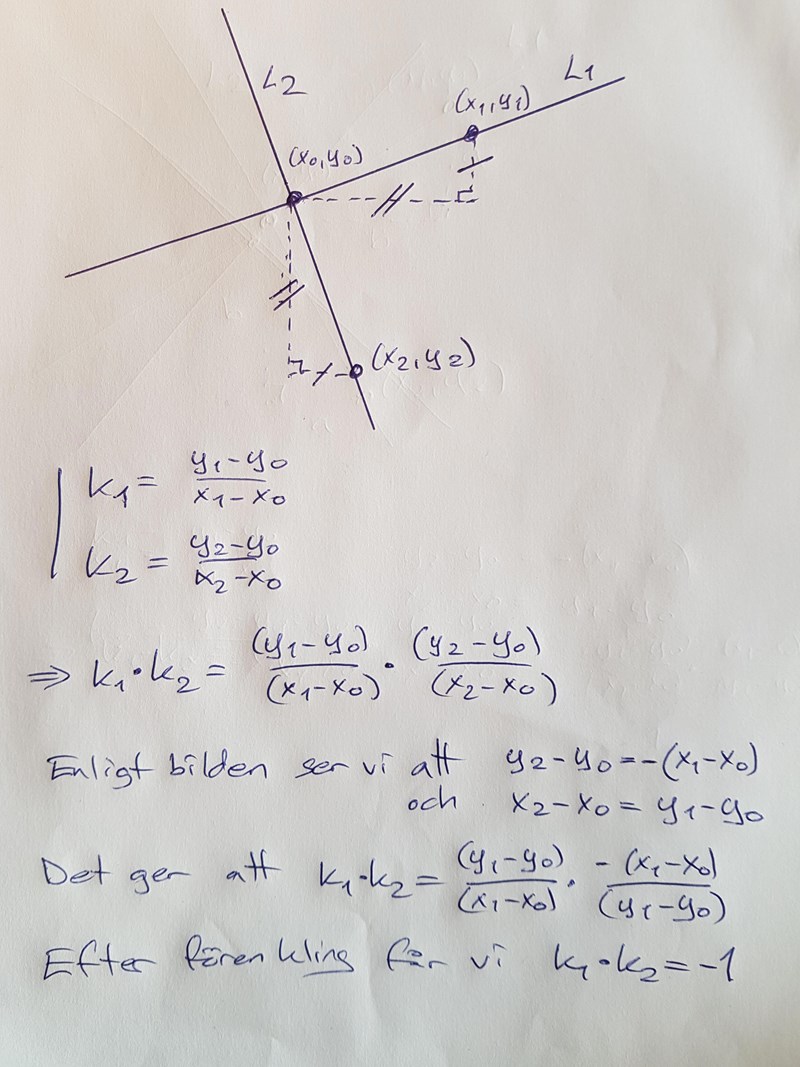 L2
L1
(x₁,y₁)
(x₀,y₀)
(x₂,y₂)
k₁ = (y₁-y₀)/(x₁-x₀)
k₂ = (y₂-y₀)/(x₂-x₀)
⇒ k₁·k₂ = (y₁-y₀)/(x₁-x₀) · (y₂-y₀)/(x₂-x₀)
Enligt bilden ser vi att y₂-y₀=-(x₁-x₀)
och x₂-x₀ = y₁-y₀
Det ger att k₁·k₂ = (y₁-y₀)/(x₁-x₀) · -(x₁-x₀)/(y₁-y₀)
Efter förenkling får vi k₁·k₂=-1